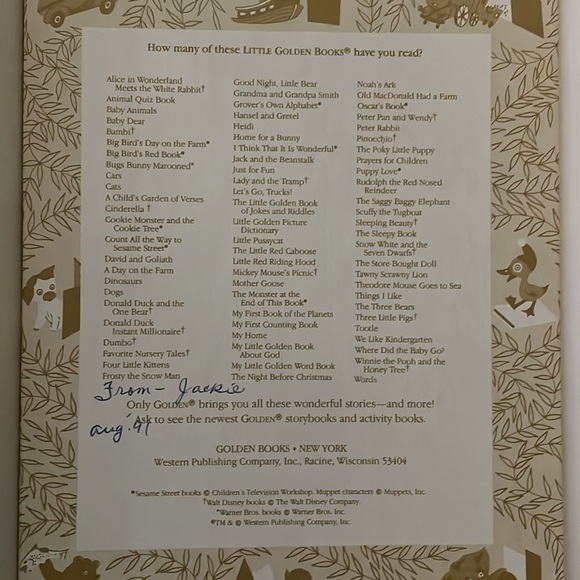 How many of these LITTLE GOLDEN BOOKS® have you read?
Alice in Wonderland
Meets the White Rabbit†
Animal Quiz Book
Baby Animals
Baby Dear
Bambi†
Big Bird's Day on the Farm*
Big Bird's Red Book*
Bugs Bunny Marooned*
Cars
Cats
A Child's Garden of Verses
Cinderella†
Cookie Monster and the
Cookie Tree*
Count All the Way to
Sesame Street*
David and Goliath
A Day on the Farm
Dinosaurs
Dogs
Donald Duck and the
One Bear†
Donald Duck
Instant Millionaire†
Dumbo†
Favorite Nursery Tales†
Four Little Kittens
Frosty the Snow Man
Good Night, Little Bear
Grandma and Grandpa Smith
Grover's Own Alphabet*
Hansel and Gretel
Heidi
Home for a Bunny
I Think That It Is Wonderful*
Jack and the Beanstalk
Just for Fun
Lady and the Tramp†
Let's Go, Trucks!
The Little Golden Book
of Jokes and Riddles
Little Golden Picture
Dictionary
Little Pussycat
The Little Red Caboose
Little Red Riding Hood
Mickey Mouse's Picnic†
Mother Goose
The Monster at the
End of This Book*
My First Book of the Planets
My First Counting Book
My Home
My Little Golden Book
About God
My Little Golden Word Book
The Night Before Christmas
Noah's Ark
Old MacDonald Had a Farm
Oscar's Book*
Peter Pan and Wendy†
Peter Rabbit
Pinocchio†
The Poky Little Puppy
Prayers for Children
Puppy Love*
Rudolph the Red-Nosed
Reindeer
The Saggy Baggy Elephant
Scuffy the Tugboat
Sleeping Beauty†
The Sleepy Book
Snow White and the
Seven Dwarfs†
The Store-Bought Doll
Tawny Scrawny Lion
Theodore Mouse Goes to Sea
Things I Like
The Three Bears
Three Little Pigs†
Tootle
We Like Kindergarten
Where Did the Baby Go?
Winnie-the-Pooh and the
Honey Tree†
Words
From - Jackie
Only GOLDEN® brings you all these wonderful stories—and more!
Ask to see the newest GOLDEN® storybooks and activity books.
aug.
GOLDEN BOOKS • NEW YORK
Western Publishing Company, Inc., Racine, Wisconsin 53404
*Sesame Street books © Children's Television Workshop. Muppet characters © Muppets, Inc.
†Walt Disney books © The Walt Disney Company
*Warner Bros. books © Warner Bros. Inc.
®TM & © Western Publishing Company, Inc.